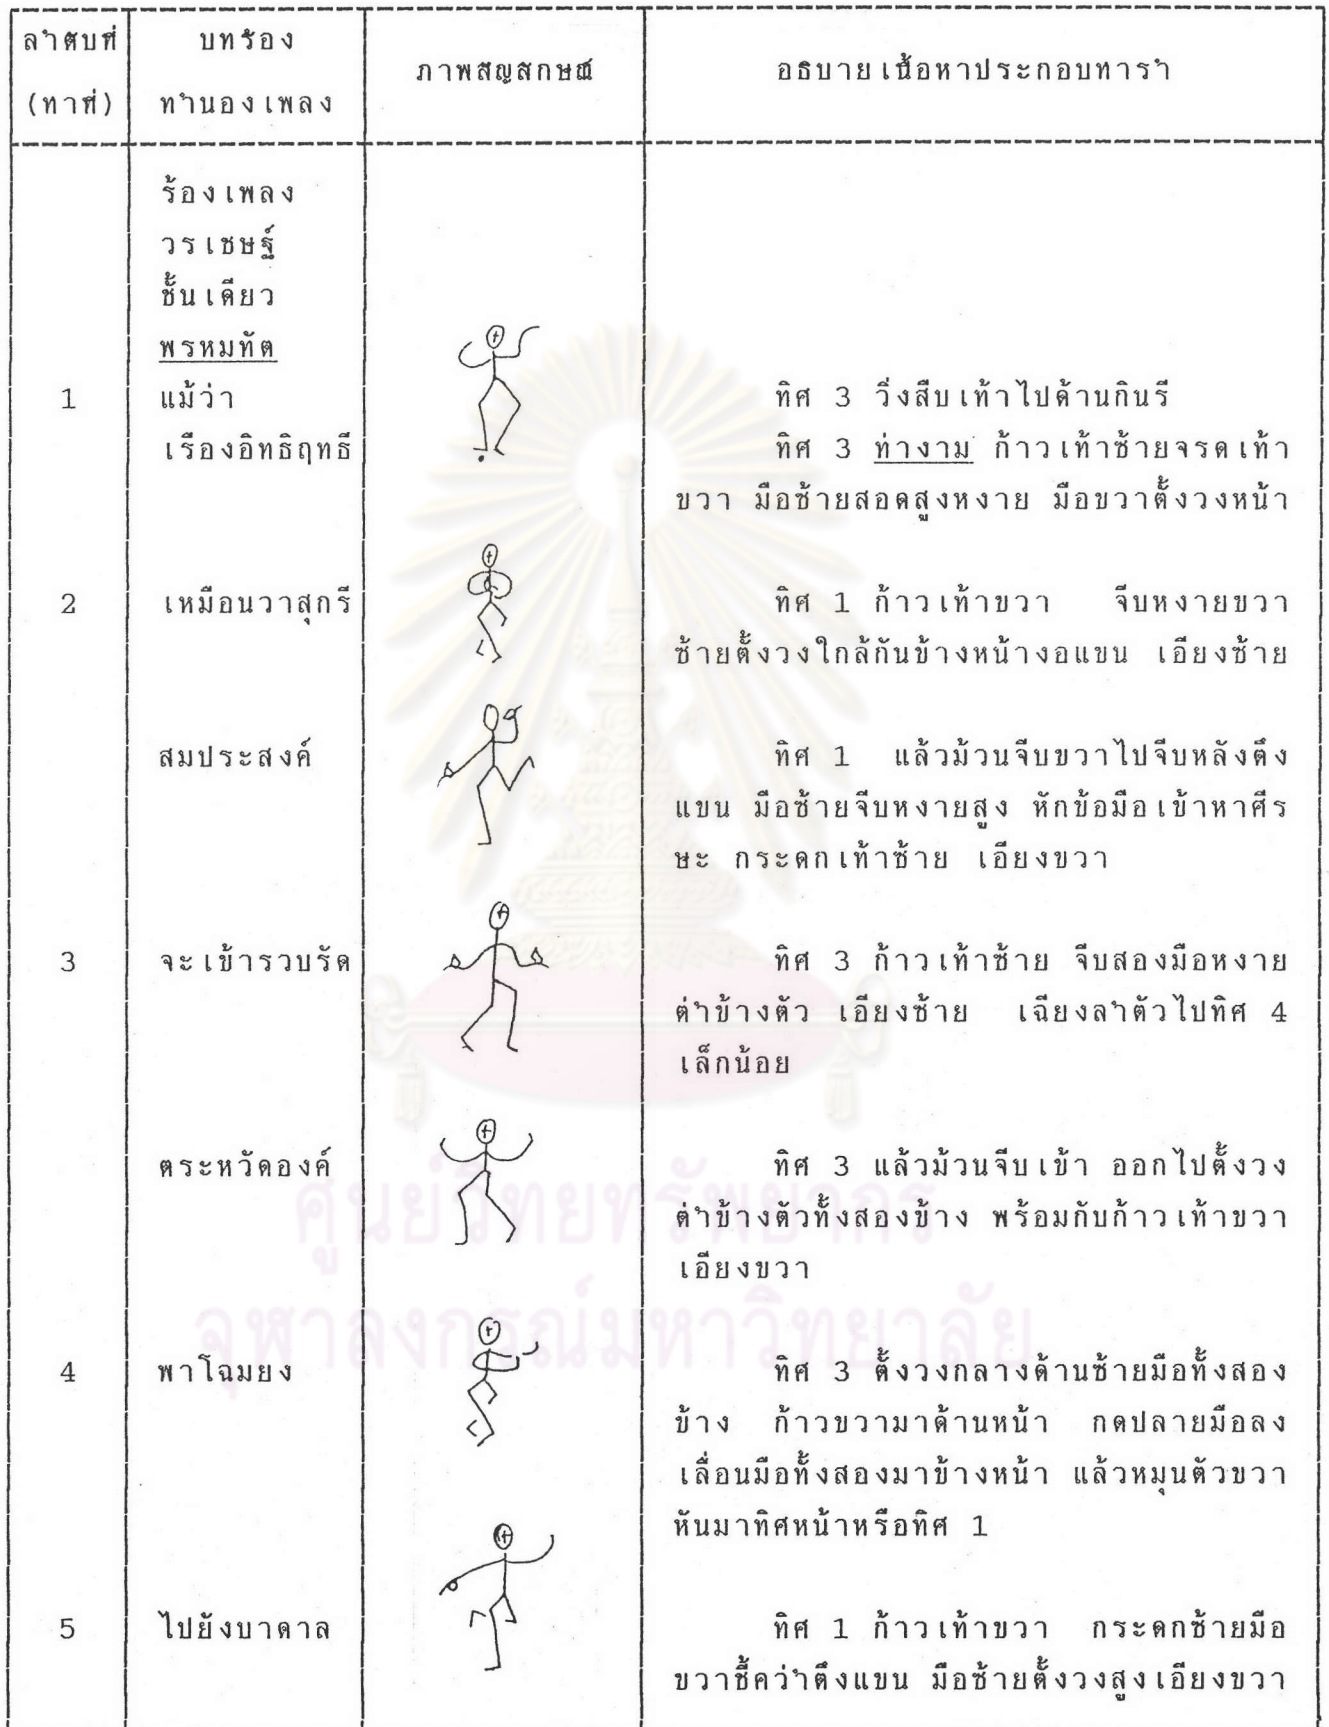 ลำดับที่ บทร้อง ภาพสัญลักษณ์ อธิบายเนื้อหาประกอบท่ารำ
(ท่าที่) ทำนองเพลง
ร้องเพลง
วรเชษฐ์
ชั้นเดียว
พรหมทัต
1 แม้ว่า ทิศ 3 วิ่งสืบเท้าไปด้านกินรี
เรืองอิทธิฤทธี ทิศ 3 ท่างาม ก้าวเท้าซ้ายจรดเท้า
ขวา มือซ้ายสอดสูงหงาย มือขวาตั้งวงหน้า
2 เหมือนวาสุกรี ทิศ 1 ก้าวเท้าขวา จีบหงายขวา
ซ้ายตั้งวงใกล้กันข้างหน้างอแขน เอียงซ้าย
สมประสงค์ ทิศ 1 แล้วม้วนจีบขวาไปจีบหลังตึง
แขน มือซ้ายจีบหงายสูง หักข้อมือเข้าหาศีร
ษะ กระดกเท้าซ้าย เอียงขวา
3 จะเข้ารวบรัด ทิศ 3 ก้าวเท้าซ้าย จีบสองมือหงาย
ต่ำข้างตัว เอียงซ้าย เฉียงลำตัวไปทิศ 4
เล็กน้อย
ตระหวัดองค์ ทิศ 3 แล้วม้วนจีบเข้า ออกไปตั้งวง
ต่ำข้างตัวทั้งสองข้าง พร้อมกับก้าวเท้าขวา
เอียงขวา
4 พาโฉมยง ทิศ 3 ตั้งวงกลางด้านซ้ายมือทั้งสอง
ข้าง ก้าวขวามาด้านหน้า กดปลายมือลง
เลื่อนมือทั้งสองมาข้างหน้า แล้วหมุนตัวขวา
หันมาทิศหน้าหรือทิศ 1
5 ไปยังบาดาล ทิศ 1 ก้าวเท้าขวา กระดกซ้ายมือ
ขวาชี้คว่ำตึงแขน มือซ้ายตั้งวงสูงเอียงขวา
ศูนย์วิทยทรัพยากร
จุฬาลงกรณ์มหาวิทยาลัย